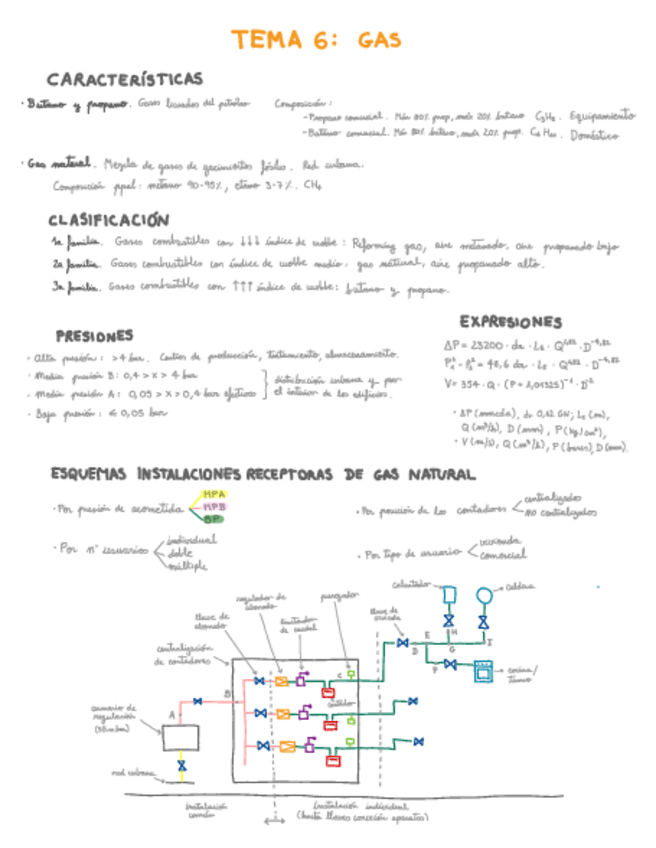 TEMA 6: GAS
CARACTERÍSTICAS
· Butano y propano. Gases licuados del petróleo
Composición:
- Propano comercial. Mín 80% prop, máx 20% butano C₃H₈. Equipamiento
- Butano comercial. Mín 80% butano, máx 20% prop. C₄H₁₀. Doméstico
· Gas natural. Mezcla de gases de yacimientos fósiles. Red urbana.
Composición ppal: metano 90-95%, etano 3-7%. CH₄
CLASIFICACIÓN
1a familia. Gases combustibles con ↓↓↓ índice de wobbe: Reforming gas, aire metanado, aire propanado bajo
2a familia. Gases combustibles con índice de wobbe medio: gas natural, aire propanado alto.
3a familia. Gases combustibles con ↑↑↑ índice de wobbe: butano y propano.
PRESIONES
· Alta presión: >4 bar. Centros de producción, tratamiento, almacenamiento.
· Media presión B: 0,4 > x > 4 bar
· Media presión A: 0,05 > x > 0,4 bar efectivos
distribución urbana y por
el interior de los edificios.
· Baja presión: ≤ 0,05 bar
EXPRESIONES
ΔP = 23200 · dr · Lₑ · Q¹·⁸² · D⁻⁴·⁸²
= 48,6 dr · Lₑ · Q¹·⁸² · D⁻⁴·⁸²
V = 354 · Q · (P + 1,01325)⁻¹ · D⁻²
· ΔP (mmcda), dr 0,62 GN; Lₑ (m),
Q (m³/h), D (mm), P (kg/cm²),
· V (m/s), Q (m³/h), P (bares), D (mm).
ESQUEMAS INSTALACIONES RECEPTORAS DE GAS NATURAL
· Por presión de acometida
MPA
MPB
BP
· Por posición de los contadores
centralizados
no centralizados
· Por nº usuarios
individual
doble
múltiple
· Por tipo de usuario
vivienda
comercial
calentador
caldera
regulador de
abonado
purgador
llave de
abonado
limitador
de caudal
llave de
vivienda
centralización
de contadores
contador
cocina/
horno
armario de
regulación
red urbana
A
B
C
D
E
F
G
H
I
instalación
común
instalación individual
(hasta llaves conexión aparatos)